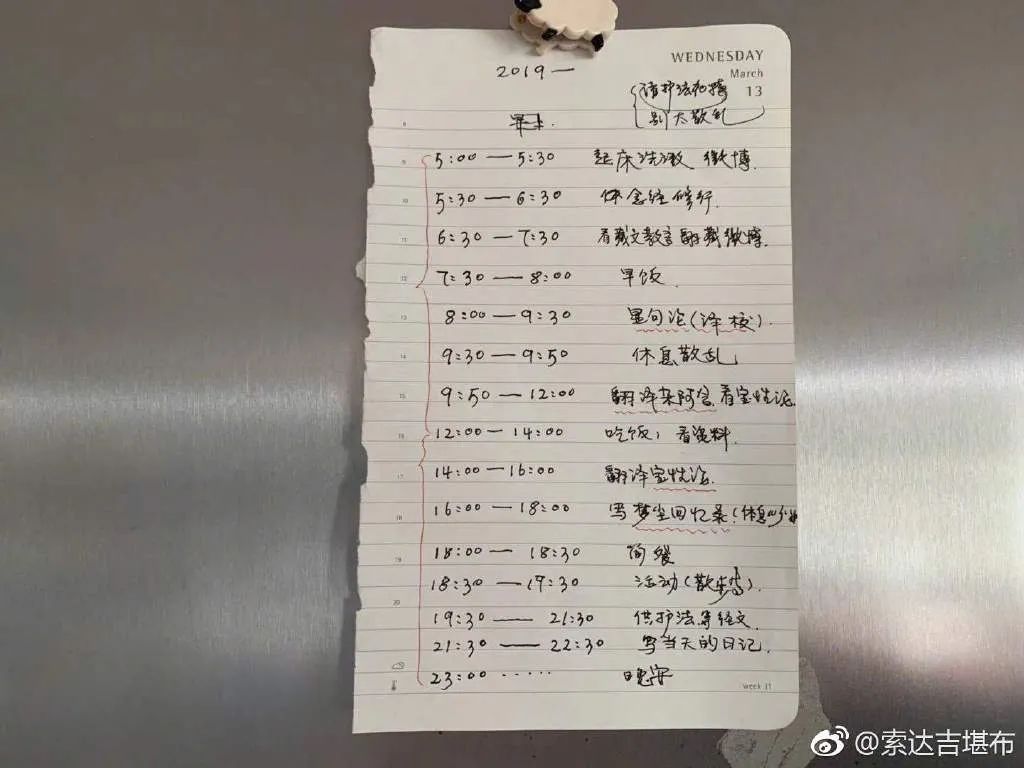 WEDNESDAY
March
13
2019—
请护法加持
别太散乱
5:00—5:30 起床洗漱 微博.
5:30—6:30 念经修行.
6:30—7:30 看藏文教言翻藏微博.
7:30—8:00 早饭
8:00—9:30 显句论(译校).
9:30—9:50 休息散乱
9:50—12:00 翻译杂阿含.看宝性论.
12:00—14:00 吃饭,看资料.
14:00—16:00 翻译宝性论.
16:00—18:00 写梦尘回忆录(休息
18:00—18:30 简餐
18:30—19:30 活动(散步等).
19:30—21:30 供护法等经文.
21:30—22:30 写当天的日记.
23:00...... 晚安
week 11
@索达吉堪布